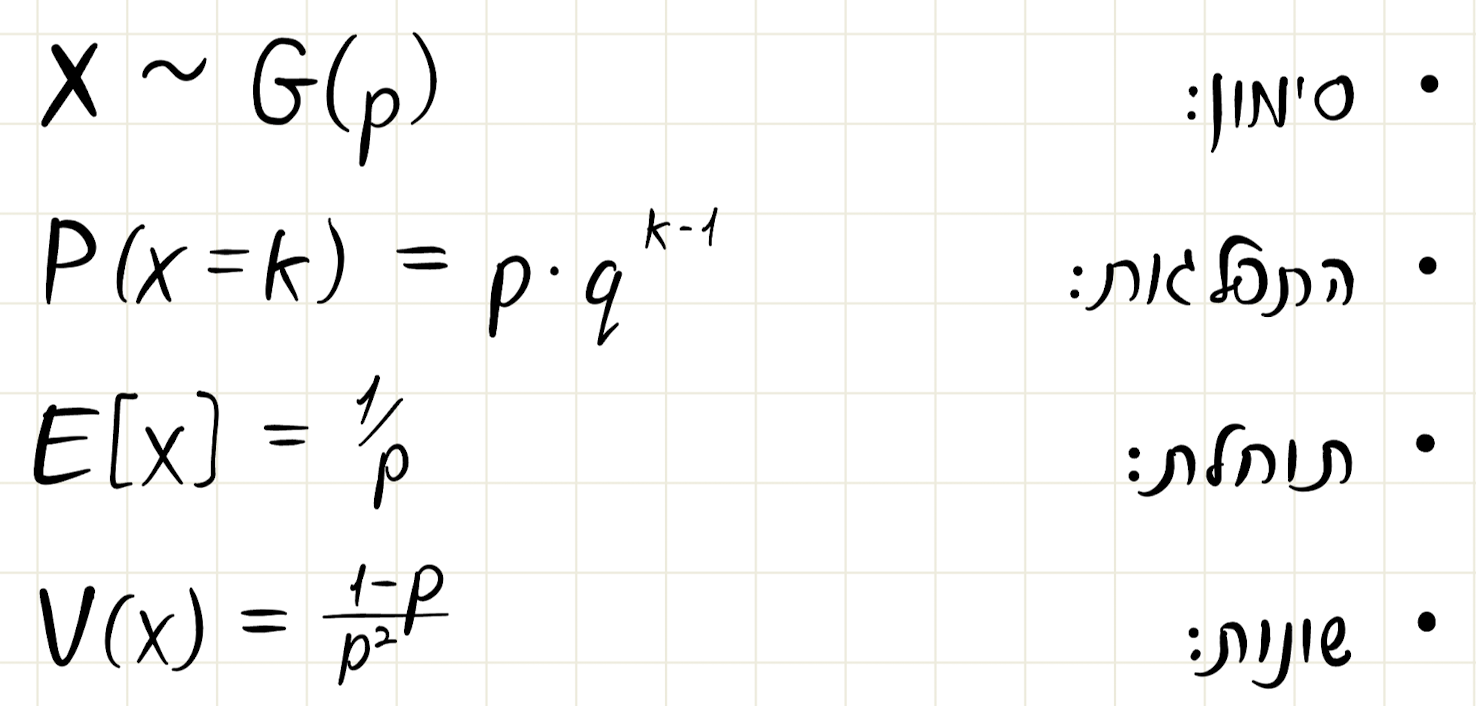 • סימון: X ~ G(p)
• התפלגות: P(x=k) = p·q^{k-1}
• תוחלת: E[x] = 1/p
• שונות: V(x) = \frac{1-p}{p^2}